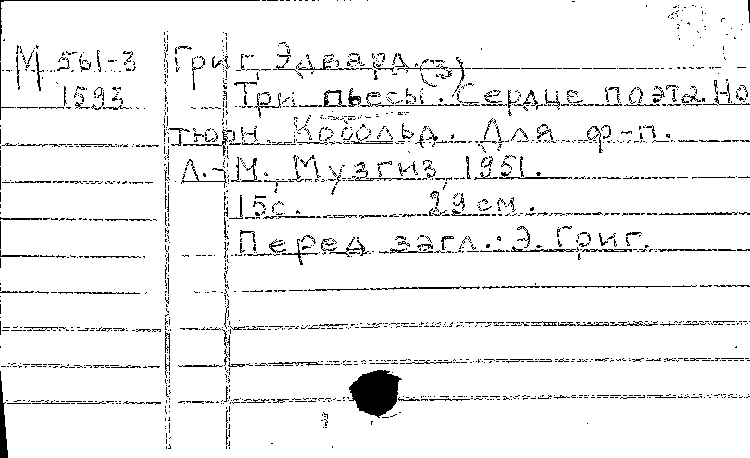 М 561-3 Григ, Эдвард. (3)
1593 Три пьесы. Сердце поэта. Но
тюрн. Кобольд. Для ф-п.
Л.-М., Музгиз, 1951.
15с. 29 см.
Перед загл.: Э. Григ.